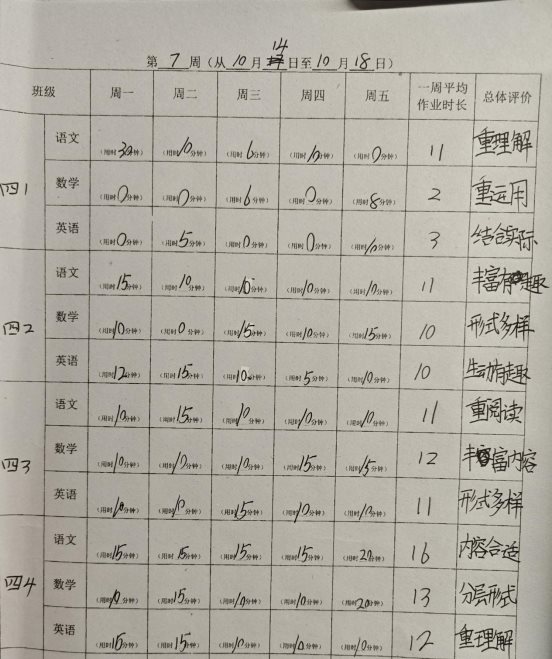 第 7 周（从 10 月 14 日至 10 月 18 日）
班级 周一 周二 周三 周四 周五 一周平均作业时长 总体评价
四1 语文 （用时30分钟） （用时10分钟） （用时6分钟） （用时10分钟） （用时0分钟） 11 重理解
数学 （用时0分钟） （用时0分钟） （用时6分钟） （用时0分钟） （用时8分钟） 2 重运用
英语 （用时0分钟） （用时5分钟） （用时0分钟） （用时0分钟） （用时10分钟） 3 结合实际
四2 语文 （用时15分钟） （用时10分钟） （用时10分钟） （用时10分钟） （用时10分钟） 11 丰富有趣
数学 （用时10分钟） （用时0分钟） （用时15分钟） （用时10分钟） （用时15分钟） 10 形式多样
英语 （用时12分钟） （用时15分钟） （用时10分钟） （用时5分钟） （用时10分钟） 10 生动有趣
四3 语文 （用时10分钟） （用时15分钟） （用时10分钟） （用时10分钟） （用时10分钟） 11 重阅读
数学 （用时10分钟） （用时10分钟） （用时10分钟） （用时15分钟） （用时15分钟） 12 丰富内容
英语 （用时10分钟） （用时10分钟） （用时15分钟） （用时10分钟） （用时10分钟） 11 形式多样
四4 语文 （用时15分钟） （用时15分钟） （用时15分钟） （用时15分钟） （用时20分钟） 16 内容合适
数学 （用时10分钟） （用时15分钟） （用时10分钟） （用时10分钟） （用时20分钟） 13 分层形式
英语 （用时15分钟） （用时15分钟） （用时10分钟） （用时10分钟） （用时10分钟） 12 重理解